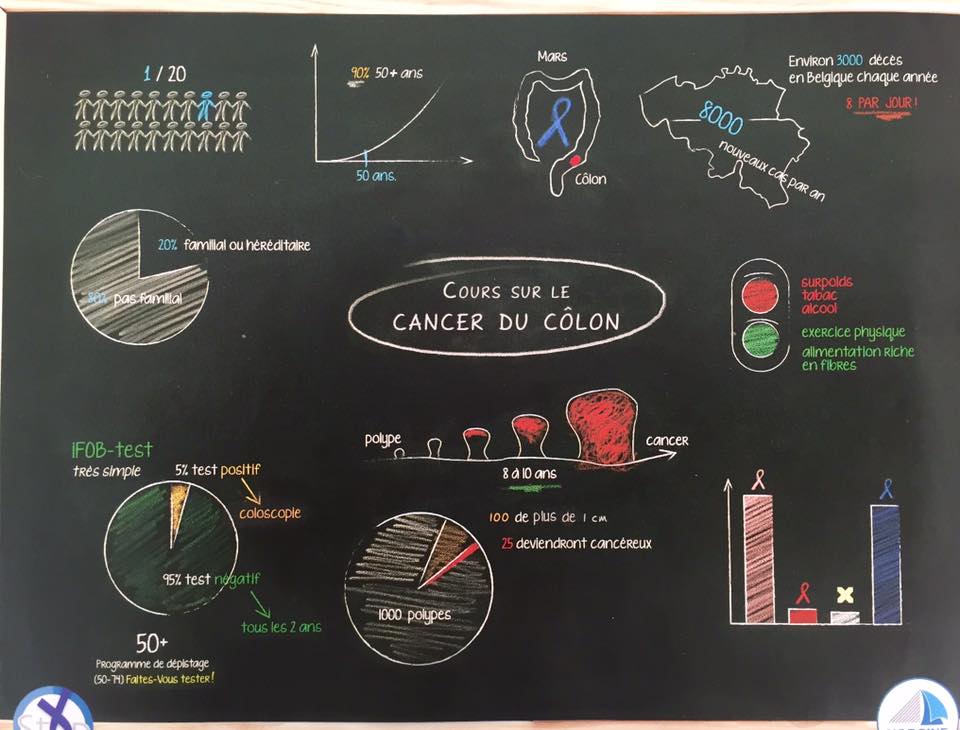 1 / 20
90% 50+ ans
50 ans.
Mars
Côlon
8000
nouveaux cas par an
Environ 3000 décès
en Belgique chaque année
8 PAR JOUR !
20% familial ou héréditaire
80% pas familial
COURS SUR LE
CANCER DU CÔLON
surpoids
tabac
alcool
exercice physique
alimentation riche
en fibres
polype
cancer
8 à 10 ans
iFOB-test
très simple
5% test positif
coloscopie
95% test négatif
tous les 2 ans
50+
Programme de dépistage
(50-74) Faites-Vous tester !
100 de plus de 1 cm
25 deviendront cancéreux
1000 polypes